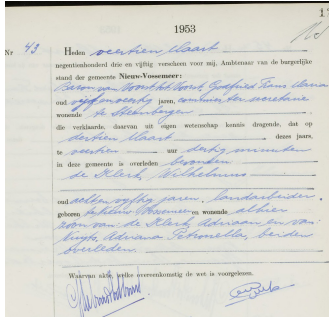 1953
Nr 43
Heden veertien Maart
negentienhonderd drie en vijftig verscheen voor mij, Ambtenaar van de burgerlijke
stand der gemeente Nieuw-Vossemeer:
Baron van Voorst tot Voorst, Godfried Frans Maria
oud vijfenveertig jaren, secretaris
wonende te Steenbergen
die verklaarde, daarvan uit eigen wetenschap kennis dragende, dat op
dertien Maart dezes jaars,
te veertien uur dertig minuten
in deze gemeente is overleden
de Klerk, Wilhelmus
oud achtenvyftig jaren, landarbeider,
geboren en wonende alhier
zoon van de Klerk, Adriaan en van
Adriana Petronella, beiden
overleden.
Waarvan akte, welke overeenkomstig de wet is voorgelezen.